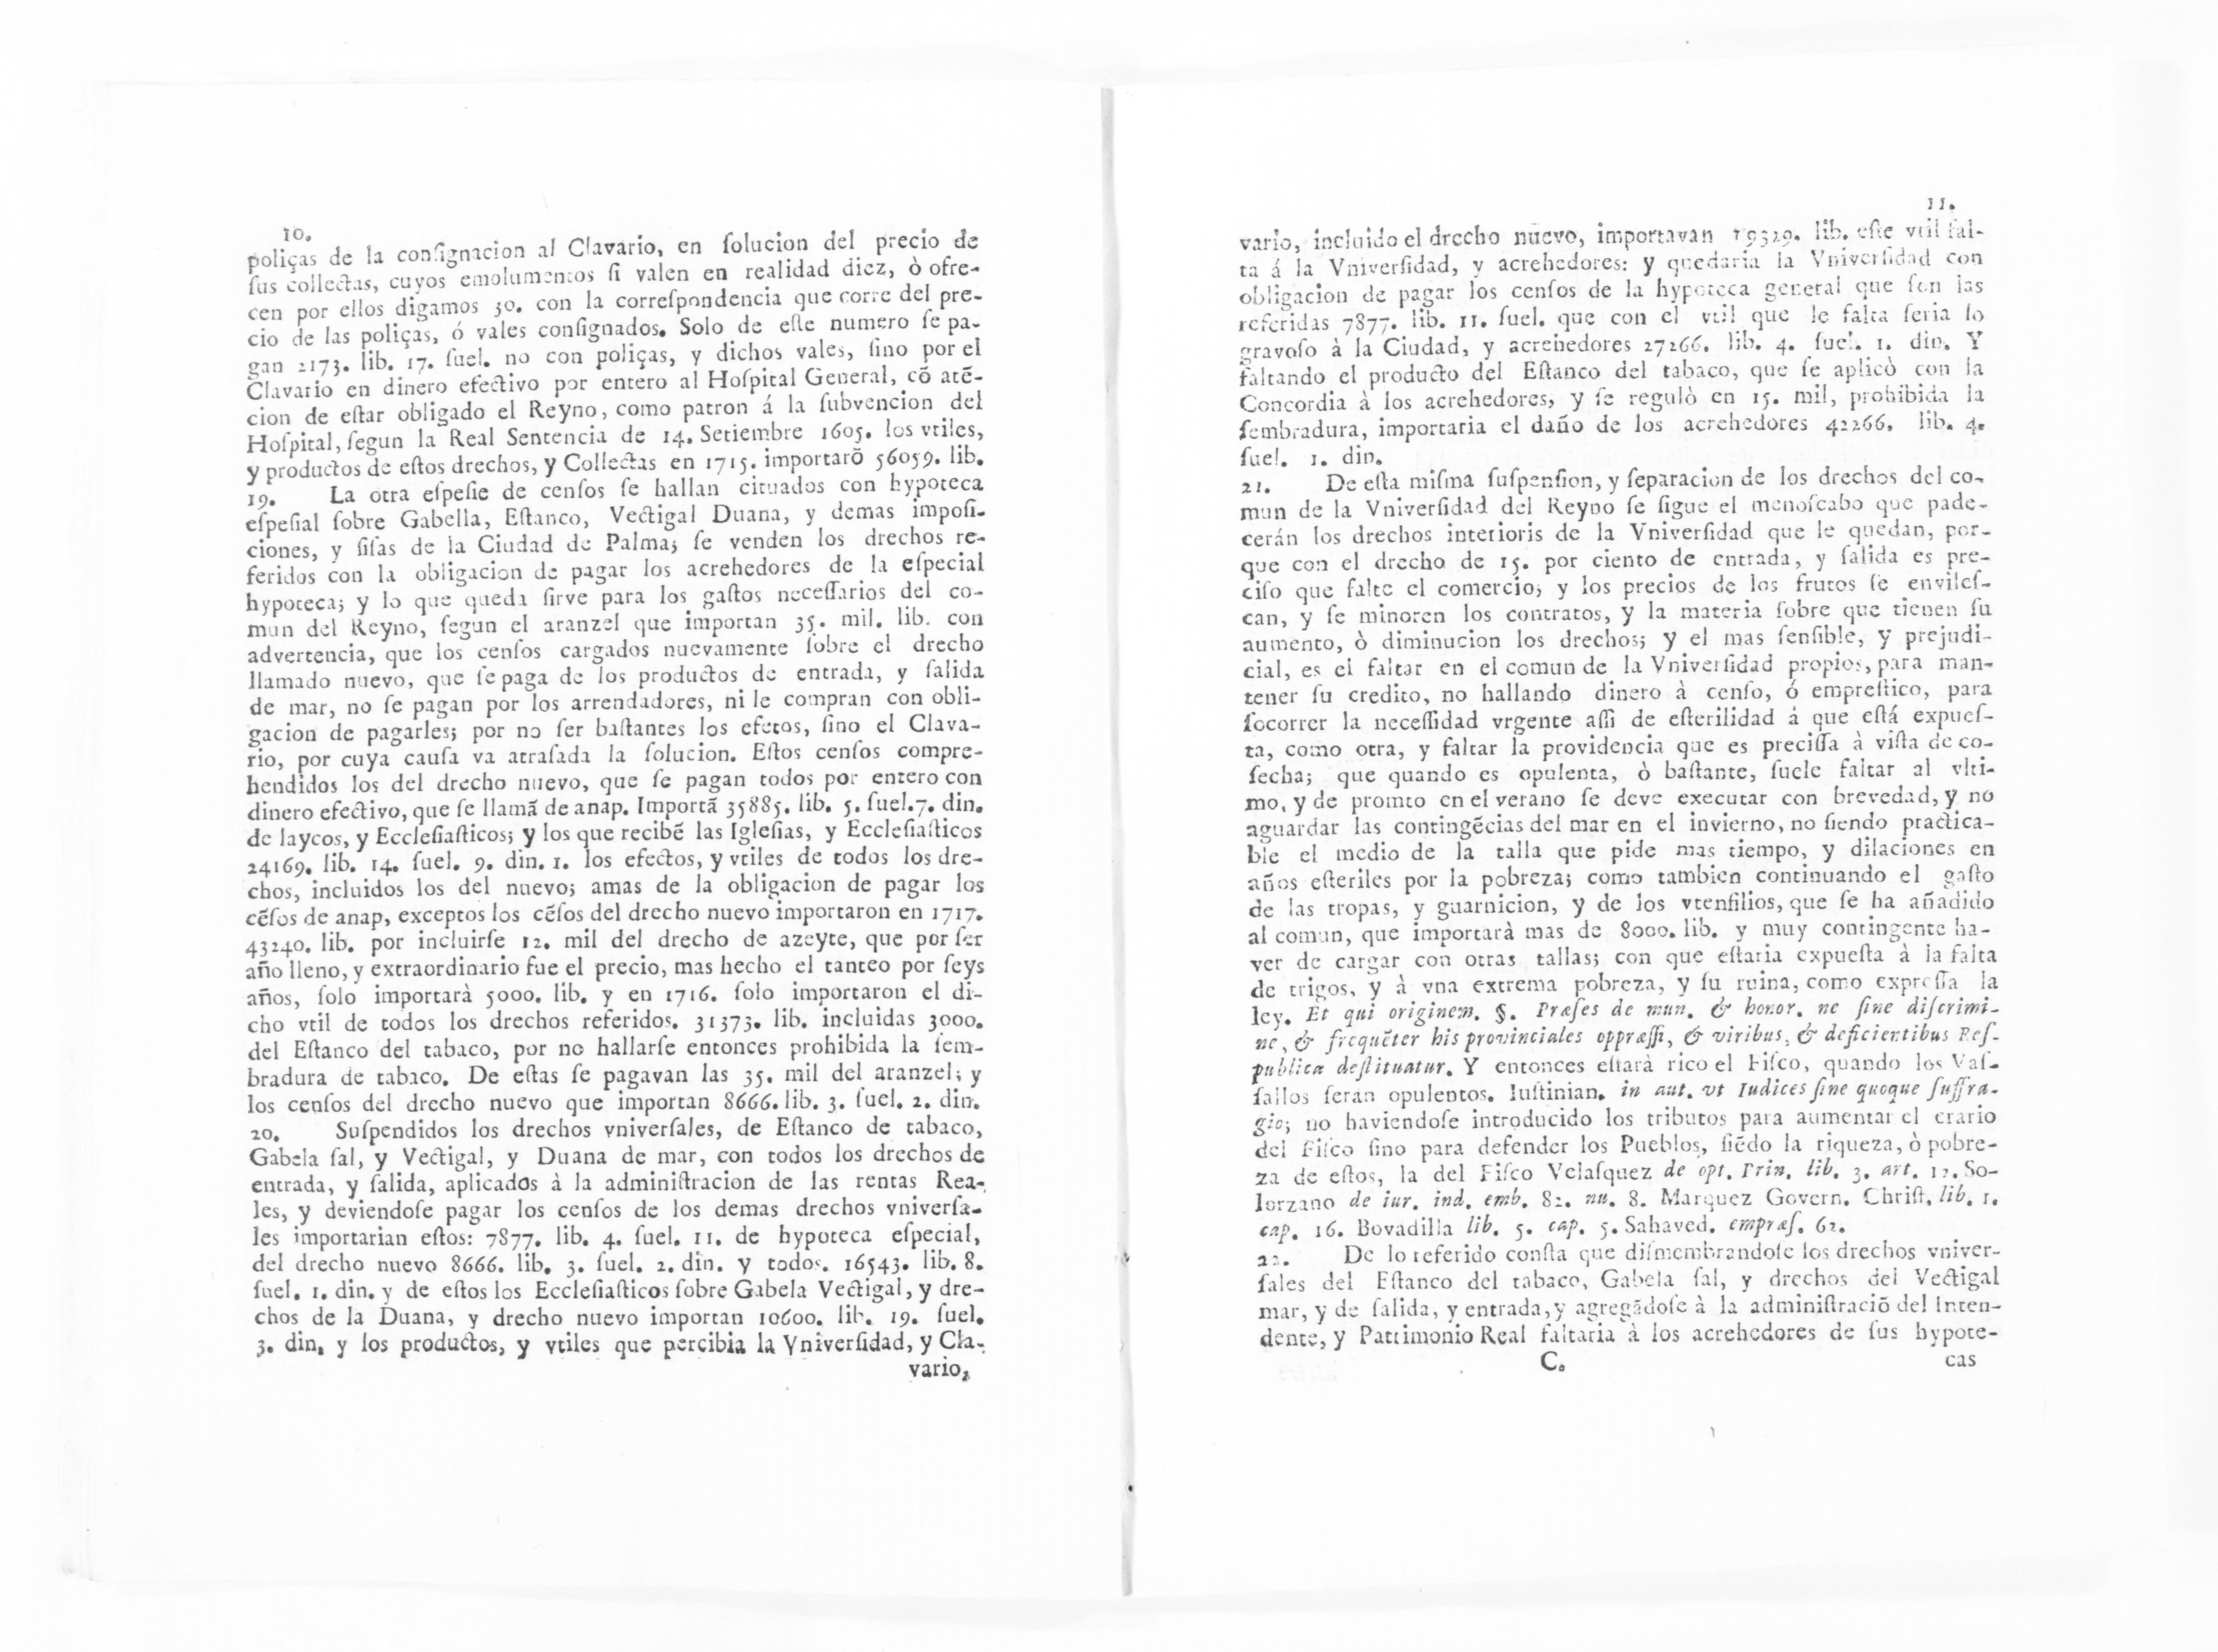 10.
poliças de la conſignacion al Clavario, en ſolucion del precio de
ſus collectas, cuyos emolumentos ſi valen en realidad diez, ò ofre-
cen por ellos digamos 30. con la correſpondencia que corre del pre-
cio de las poliças, ó vales conſignados. Solo de eſte numero ſe pa-
gan 2173. lib. 17. ſuel. no con poliças, y dichos vales, ſino por el
Clavario en dinero efectivo por entero al Hoſpital General, cõ atẽ-
cion de eſtar obligado el Reyno, como patron á la ſubvencion del
Hoſpital, ſegun la Real Sentencia de 14. Setiembre 1605. los vtiles,
y productos de eſtos drechos, y Collectas en 1715. importarõ 56059. lib.
19. La otra eſpeſie de cenſos ſe hallan cituados con hypoteca
eſpeſial ſobre Gabella, Eſtanco, Vectigal Duana, y demas impoſi-
ciones, y ſiſas de la Ciudad de Palma; ſe venden los drechos re-
feridos con la obligacion de pagar los acrehedores de la eſpecial
hypoteca; y lo que queda ſirve para los gaſtos neceſſarios del co-
mun del Reyno, ſegun el aranzel que importan 35. mil. lib. con
advertencia, que los cenſos cargados nuevamente ſobre el drecho
llamado nuevo, que ſe paga de los productos de entrada, y ſalida
de mar, no ſe pagan por los arrendadores, ni le compran con obli-
gacion de pagarles; por no ſer baſtantes los efetos, ſino el Clava-
rio, por cuya cauſa va atraſada la ſolucion. Eſtos cenſos compre-
hendidos los del drecho nuevo, que ſe pagan todos por entero con
dinero efectivo, que ſe llamã de anap. Importã 35885. lib. 5. ſuel. 7. din.
de laycos, y Eccleſiaſticos; y los que recibẽ las Igleſias, y Eccleſiaſticos
24169. lib. 14. ſuel. 9. din. 1. los efectos, y vtiles de todos los dre-
chos, incluidos los del nuevo; amas de la obligacion de pagar los
cẽſos de anap, exceptos los cẽſos del drecho nuevo importaron en 1717.
43240. lib. por incluirſe 12. mil del drecho de azeyte, que por ſer
año lleno, y extraordinario fue el precio, mas hecho el tanteo por ſeys
años, ſolo importarà 5000. lib. y en 1716. ſolo importaron el di-
cho vtil de todos los drechos referidos. 31373. lib. incluidas 3000.
del Eſtanco del tabaco, por no hallarſe entonces prohibida la ſem-
bradura de tabaco. De eſtas ſe pagavan las 35. mil del aranzel; y
los cenſos del drecho nuevo que importan 8666. lib. 3. ſuel. 2. din.
20. Suſpendidos los drechos vniverſales, de Eſtanco de tabaco,
Gabela ſal, y Vectigal, y Duana de mar, con todos los drechos de
entrada, y ſalida, aplicados à la adminiſtracion de las rentas Rea-
les, y deviendoſe pagar los cenſos de los demas drechos vniverſa-
les importarian eſtos: 7877. lib. 4. ſuel. 11. de hypoteca eſpecial,
del drecho nuevo 8666. lib. 3. ſuel. 2. din. y todos. 16543. lib. 8.
ſuel. 1. din. y de eſtos los Eccleſiaſticos ſobre Gabela Vectigal, y dre-
chos de la Duana, y drecho nuevo importan 10600. lib. 19. ſuel.
3. din. y los productos, y vtiles que percibia la Vniverſidad, y Cla-
vario,
11.
vario, incluido el drecho nuevo, importavan 19329. lib. eſte vtil fal-
ta á la Vniverſidad, y acrehedores: y quedaria la Vniverſidad con
obligacion de pagar los cenſos de la hypoteca general que ſon las
referidas 7877. lib. 11. ſuel. que con el vtil que le falta ſeria lo
gravoſo à la Ciudad, y acrehedores 27266. lib. 4. ſuel. 1. din. Y
faltando el producto del Eſtanco del tabaco, que ſe aplicò con la
Concordia à los acrehedores, y ſe regulò en 15. mil, prohibida la
ſembradura, importaria el daño de los acrehedores 42266. lib. 4.
ſuel. 1. din.
21. De eſta miſma ſuſpenſion, y ſeparacion de los drechos del co-
mun de la Vniverſidad del Reyno ſe ſigue el menoſcabo que pade-
cerán los drechos interioris de la Vniverſidad que le quedan, por-
que con el drecho de 15. por ciento de entrada, y ſalida es pre-
ciſo que falte el comercio, y los precios de los frutos ſe envileſ-
can, y ſe minoren los contratos, y la materia ſobre que tienen ſu
aumento, ò diminucion los drechos; y el mas ſenſible, y prejudi-
cial, es el faltar en el comun de la Vniverſidad propios, para man-
tener ſu credito, no hallando dinero à cenſo, ó empreſtico, para
ſocorrer la neceſſidad vrgente aſſi de eſterilidad á que eſtá expueſ-
ta, como otra, y faltar la providencia que es preciſſa à viſta de co-
ſecha; que quando es opulenta, ò baſtante, ſuele faltar al vlti-
mo, y de promto en el verano ſe deve executar con brevedad, y no
aguardar las contingẽcias del mar en el invierno, no ſiendo practica-
ble el medio de la talla que pide mas tiempo, y dilaciones en
años eſteriles por la pobreza; como tambien continuando el gaſto
de las tropas, y guarnicion, y de los vtenſilios, que ſe ha añadido
al comun, que importarà mas de 8000. lib. y muy contingente ha-
ver de cargar con otras tallas; con que eſtaria expueſta à la falta
de trigos, y à vna extrema pobreza, y ſu ruina, como expreſſa la
ley. Et qui originem. §. Præſes de mun. & honor. ne ſine diſcrimi-
ne, & frequẽter his provinciales oppræſſi, & viribus, & deficientibus Reſ-
publica deſtituatur. Y entonces eſtarà rico el Fiſco, quando los Vaſ-
ſallos ſeran opulentos. Iuſtinian. in aut. vt Iudices ſine quoque ſuffra-
gio; no haviendoſe introducido los tributos para aumentar el erario
del Fiſco ſino para defender los Pueblos, ſiẽdo la riqueza, ò pobre-
za de eſtos, la del Fiſco Velaſquez de opt. Prin. lib. 3. art. 12. So-
lorzano de iur. ind. emb. 82. nu. 8. Marquez Govern. Chriſt. lib. 1.
cap. 16. Bovadilla lib. 5. cap. 5. Sahaved. empræſ. 62.
22. De lo referido conſta que diſmembrandoſe los drechos vniver-
ſales del Eſtanco del tabaco, Gabela ſal, y drechos del Vectigal
mar, y de ſalida, y entrada, y agregãdoſe à la adminiſtraciõ del Inten-
dente, y Patrimonio Real faltaria à los acrehedores de ſus hypote-
C. cas